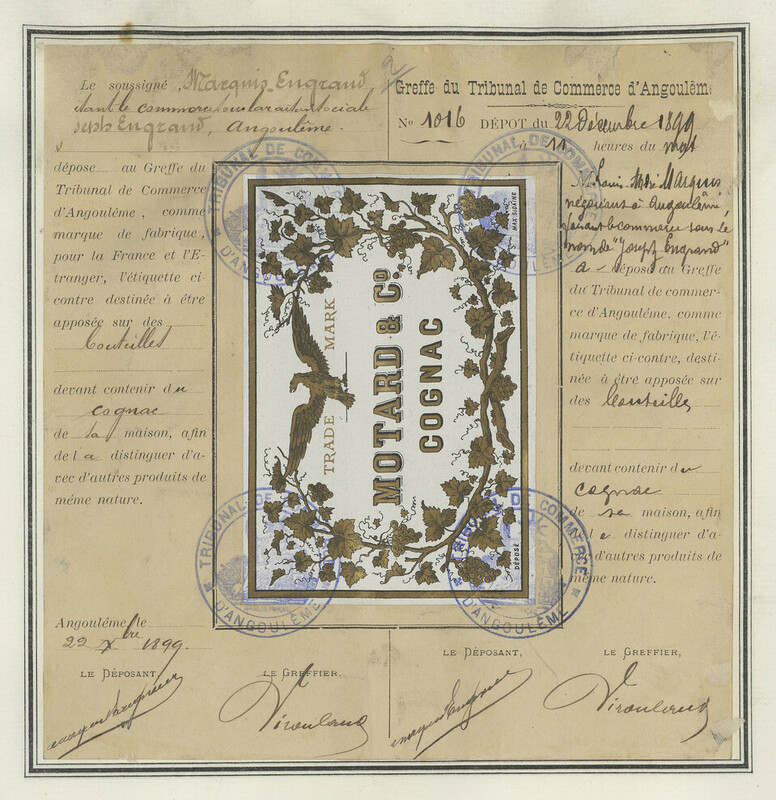 Le soussigné, Marquis-Engrand
étant le commerce sous la raison sociale
Joseph Engrand, Angoulême.
dépose au Greffe du
Tribunal de Commerce
d'Angoulême, comme
marque de fabrique,
pour la France et l'E-
tranger, l'étiquette ci-
contre destinée à être
apposée sur des
bouteilles
devant contenir du
cognac
de sa maison, afin
de la distinguer d'a-
vec d'autres produits de
même nature.
Angoulême le
22 Xbre 1899.
LE DÉPOSANT
LE GREFFIER,
Greffe du Tribunal de Commerce d'Angoulême
No 1016 DÉPOT du 22 Décembre 1899
à 11 heures du mat
M. Louis Marquis
négociant à Angoulême,
faisant le commerce sous le
nom de "Joseph Engrand"
a dépose au Greffe
du Tribunal de commer-
ce d'Angoulême, comme
marque de fabrique, l'é-
tiquette ci-contre, desti-
née à être apposée sur
des bouteilles
devant contenir du
cognac
de sa maison, afin
de le distinguer d'a-
d'autres produits de
même nature.
LE DÉPOSANT,
LE GREFFIER,
TRADE MARK
MOTARD & Co
COGNAC
MAX SIDAINE
DÉPOSÉ
TRIBUNAL DE COMMERCE
D'ANGOULÊME
TRIBUNAL DE COMMERCE
D'ANGOULÊME
TRIBUNAL DE COMMERCE
D'ANGOULÊME
TRIBUNAL DE COMMERCE
D'ANGOULÊME